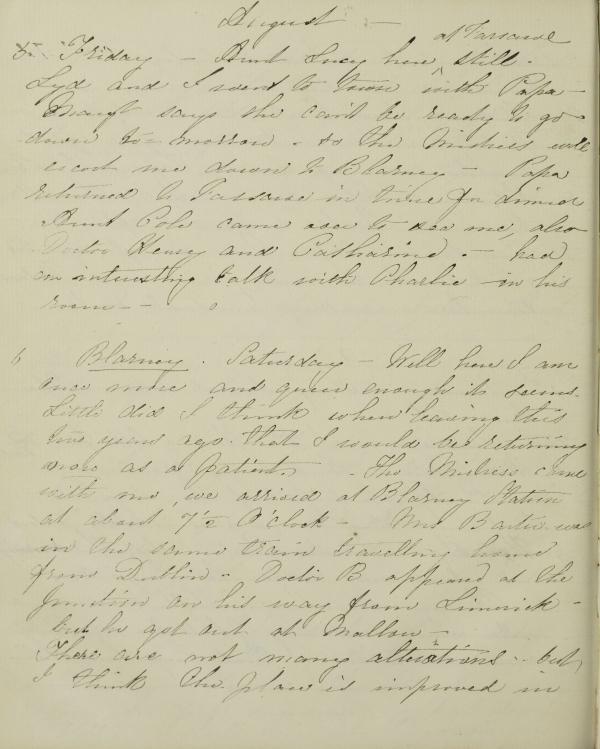 August —
at Tassaue
5. Friday — Aunt Lucy here, still.
Lyd and I went to town with Papa —
says she can't be ready to go
down to-morrow. so the Mistress will
escort me down to Blarney — Papa
returned to Tassaue in time for dinner
Aunt Cole came over to see me, also
Doctor Henry and Catharine. — had
an interesting talk with Charlie in his
room — —
6 Blarney. Saturday — Well here I am
once more and queer enough it seems.
Little did I think when leaving this
two years ago. that I would be returning
now as a patient. The Mistress came
with me, we arrived at Blarney Station
at about 7½ O'clock — Mrs Barter was
in the same train travelling home
from Dublin — Doctor B appeared at the
Junction on his way from Limerick —
but he got out at Mallow —
There are not many alterations — but
I think the place is improved in